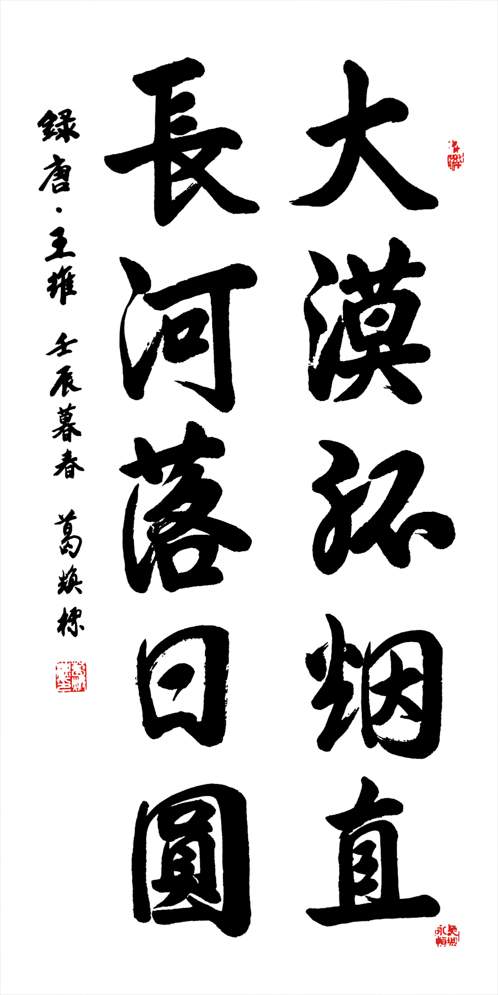 大漠孤烟直
長河落日圓
録唐·王維 壬辰暮春 葛煥標